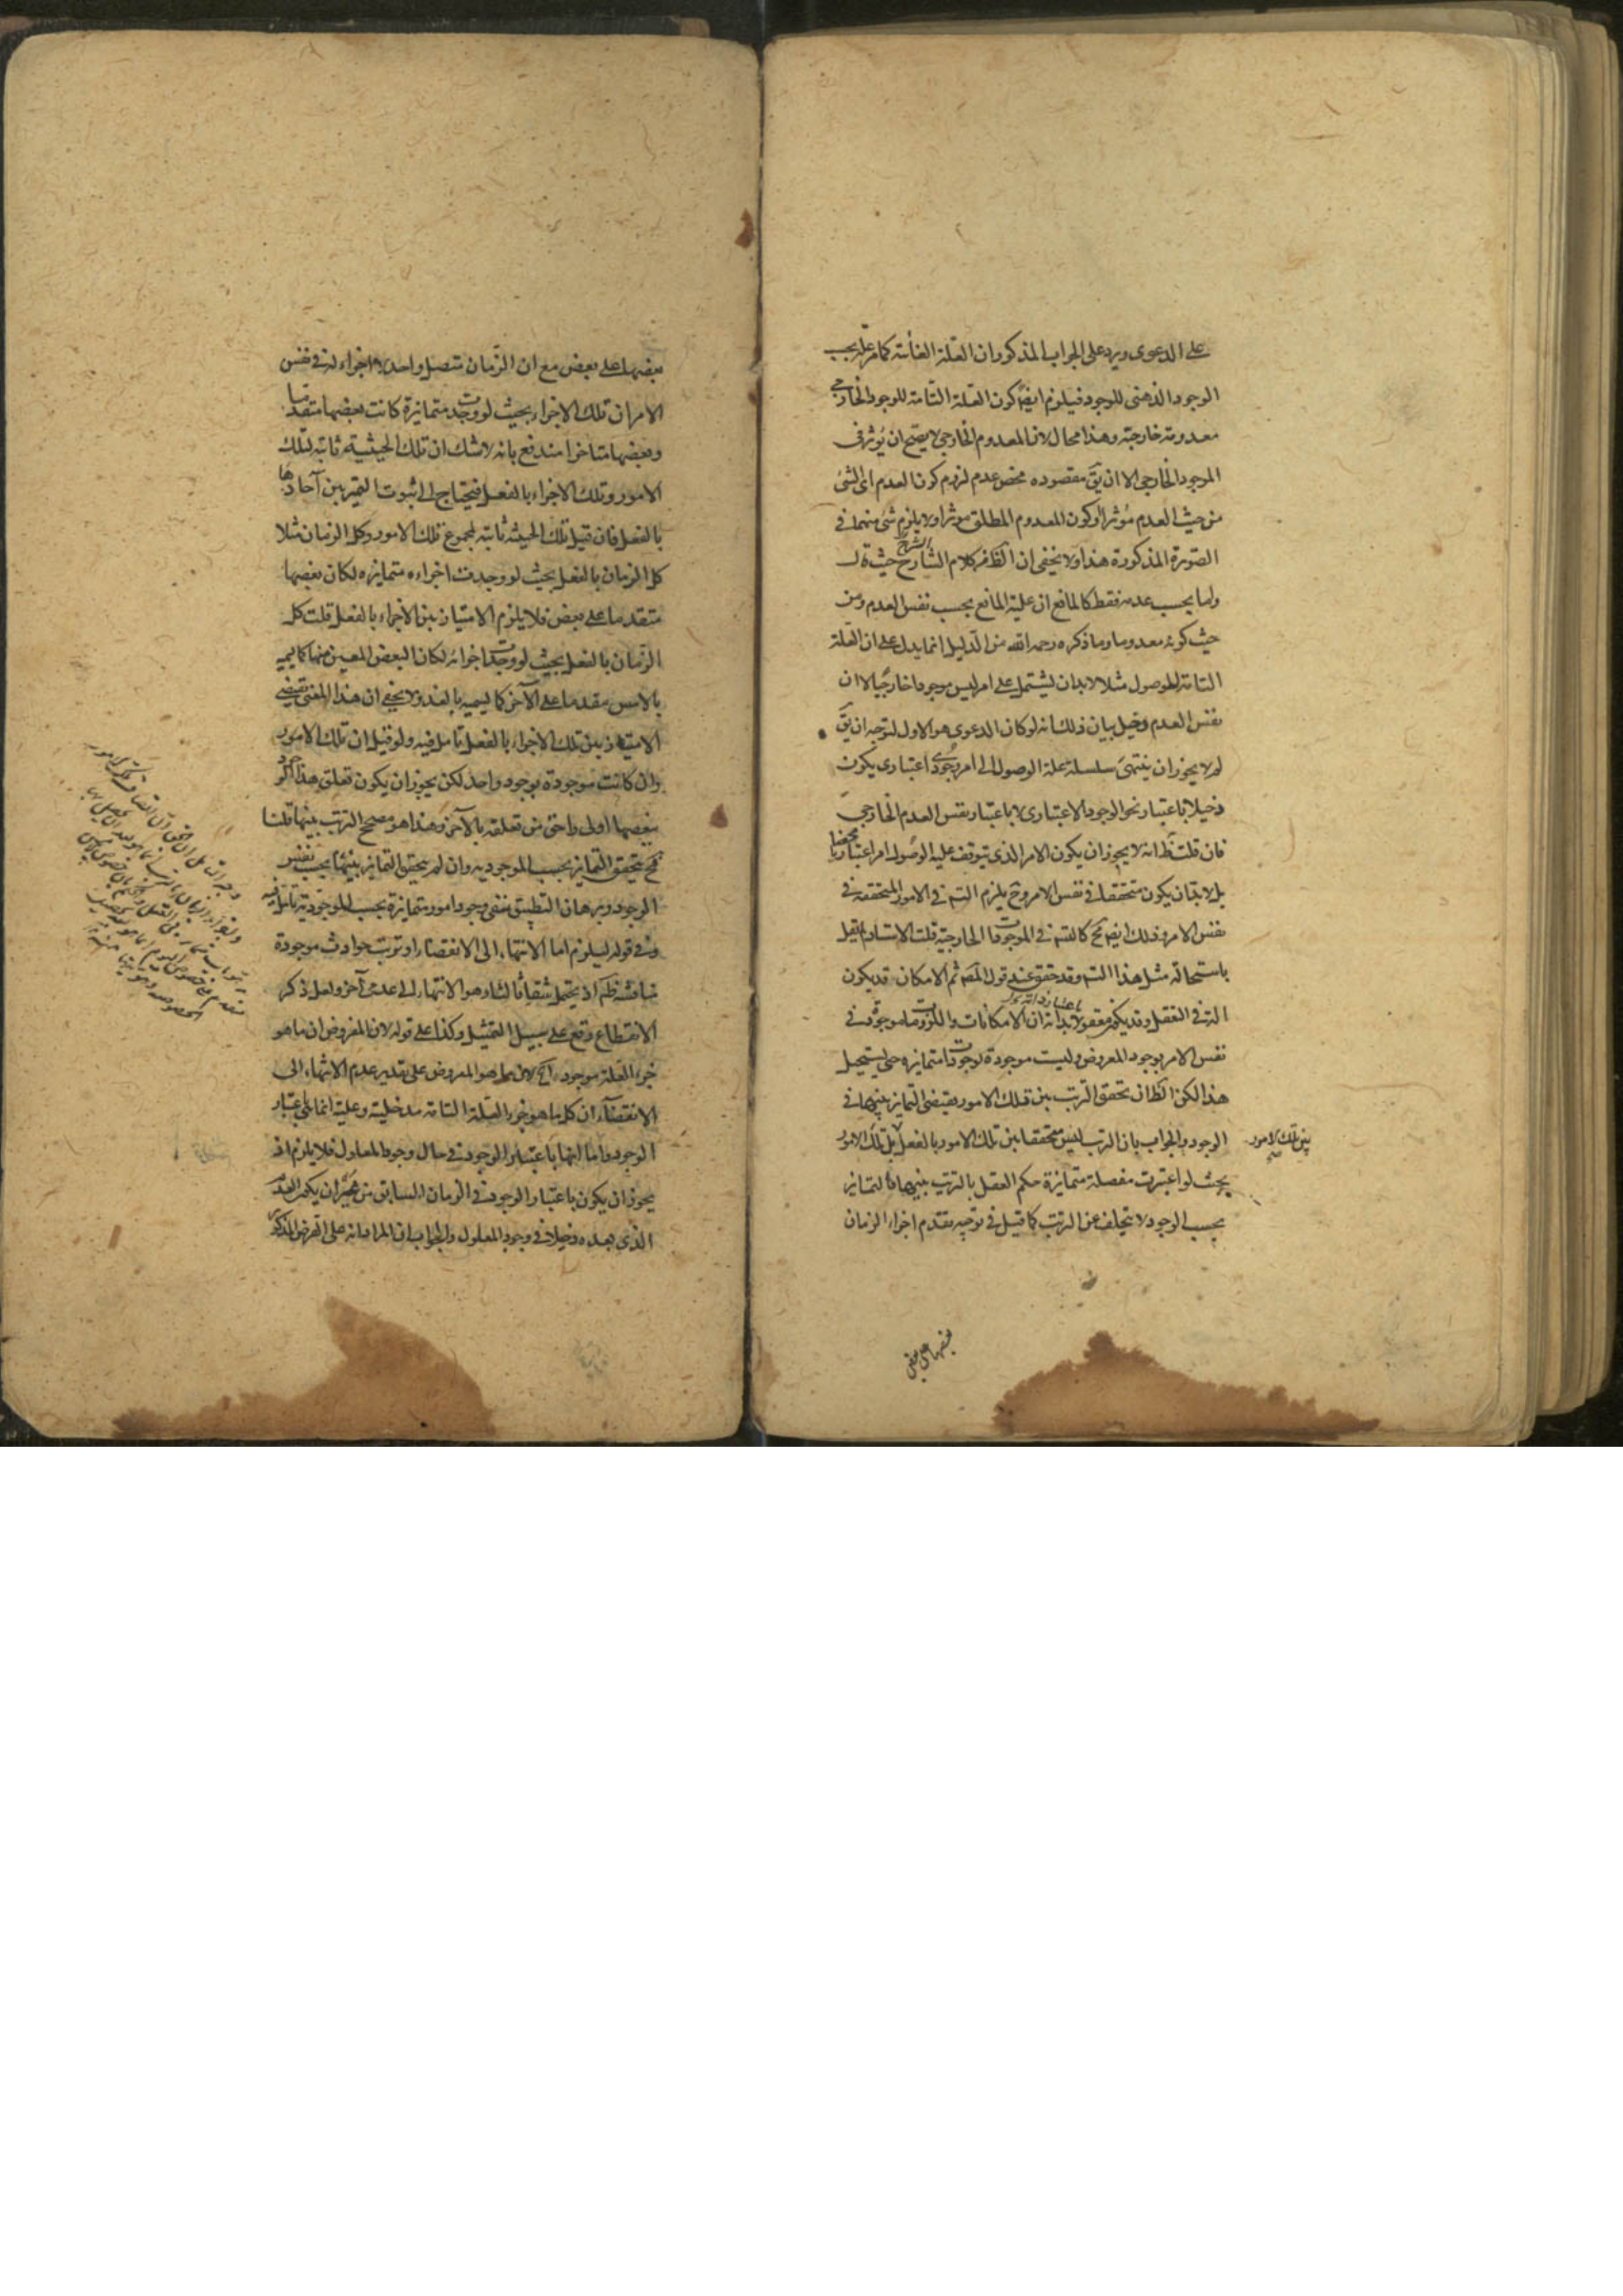 على الدعوى ويرد على الجواب المذكور ان العلة الغائية كما مر علة بحسب
الوجود الذهنى للوجود فيلزم ايضا كون العلة التامة للوجود الخارجى
معدومة خارجية وهذا محال لان المعدوم الخارجى لا يصح ان يؤثر فى
الموجود الخارجى الا ان يق مقصوده محض عدم لزوم كون العدم اى الشئ
من حيث العدم مؤثرا او كون المعدوم المطلق مؤثرا ولا يلزم شئ منهما فى
الصورة المذكورة هذا ولا يخفى ان الظ من كلام الشارح حيث قال
واما بحسب عدمه فقط كالمانع ان علية المانع بحسب نفس العدم ومن
حيث كونه معدوما وما ذكره رحمه الله من الدليل انما يدل على ان العلة
التامة للوصول مثلا لابد ان يشتمل على امر ليس موجودا خارجيا لا ان
نفس العدم دخيل بيان ذلك انه لو كان الدعوى هو الاول لتوجه ان يق
لم لا يجوز ان ينتهى سلسلة علة الوصول الى امر وجودى اعتبارى يكون
دخيلا باعتبار نحو الوجود الاعتبارى لا باعتبار نفس العدم الخارجى
فان قلت ظ انه لا يجوز ان يكون الامر الذى يتوقف عليه الوصول امرا اعتباريا محضا
بل لابد ان يكون متحققا فى نفس الامر وح يلزم التسه فى الامور المتحققة فى
نفس الامر وذلك ايضا مح كالتسه فى الموجودات الخارجية قلت الاستاد لم يقل
باستحالة مثل هذا التسه وقد حقق عند قول المصه ثم الامكان قد يكون
الة فى التعقل وقد يكون معقولا باعتبار ذاته ان الامكانات واللزومات موجودة فى
نفس الامر بوجود المعروض وليست موجودة بوجودات متمايزة حتى يستحيل
هذا لكن الظ ان تحقق الترتب بين تلك الامور يقتضى التمايز بينها فى
الوجود والجواب بان الترتب ليس متحققا بين تلك الامور بالفعل بل تلك الامور
بحيث لو اعتبرت مفصلة متمايزة حكم العقل بالترتب بينها فالتمايز
بحسب الوجود لا يتخلف عن الترتب كما قيل فى توجيه تقدم اجزاء الزمان
بين تلك الامور
بعضها على بعض
بعضها على بعض مع ان الزمان متصل واحد لا اجزاء له فى نفس
الامر ان تلك الاجزاء بحيث لو وجدت متمايزة كانت بعضها متقدما
وبعضها متاخرا مندفع بانه لا شك ان تلك الحيثية ثابتة لتلك
الامور وتلك الاجزاء بالفعل فيحتاج الى ثبوت التميز بين آحادها
بالفعل فان قيل تلك الحيثية ثابتة لمجموع تلك الامور وكل الزمان مثلا
كل الزمان بالفعل بحيث لو وجدت اجزاءه متمايزه لكان بعضها
متقدما على بعض فلا يلزم الامتياز بين الاجزاء بالفعل قلت كل
الزمان بالفعل بحيث لو وجدت اجزائه لكان البعض المعين منها كما يسميه
بالامس مقدما على الآخر كما يسميه بالغد ولا يخفى ان هذا المعنى يقتضى
الامتياز بين تلك الاجزاء بالفعل تامل فيه ولو قيل ان تلك الامور
وان كانت موجودة بوجود واحد لكن يجوز ان يكون تعلق هذا الوجود
ببعضها اولى واحق من تعلقه بالآخر وهذا هو مصحح الترتب بينها قلنا
فح يتحقق التمايز بحسب الموجودية وان لم يتحقق التمايز بينها بحسب نفس
الوجود وبرهان التطبيق ينفى وجود امور متمايزة بحسب الموجودية تامل فيه
وفى قوله ليلزم اما الانتهاء الى الانقضاء او ترتب حوادث موجودة
مناقشة ظه اذ يحتمل شقا ثالثا وهو الانتهاء الى عدمى آخر ولعل ذكر
الانقطاع وقع على سبيل التمثيل وكذا على قوله لان المفروض ان ما هو
جزء العلة موجود اه لان ما هو المعروض على تقدير عدم الانتهاء الى
الانقضاء ان كل ما هو جزء العلة التامة مدخلية وعلية انما على اعتبار
الوجود واما انها باعتبار الوجود فى حال وجود المعلول فلا يلزم اذ
يجوز ان يكون باعتبار الوجود فى الزمان السابق من غير ان يكون العدم
الذى بعده دخيلا فى وجود المعلول والجواب ان المراد انه على الفرض المذكور